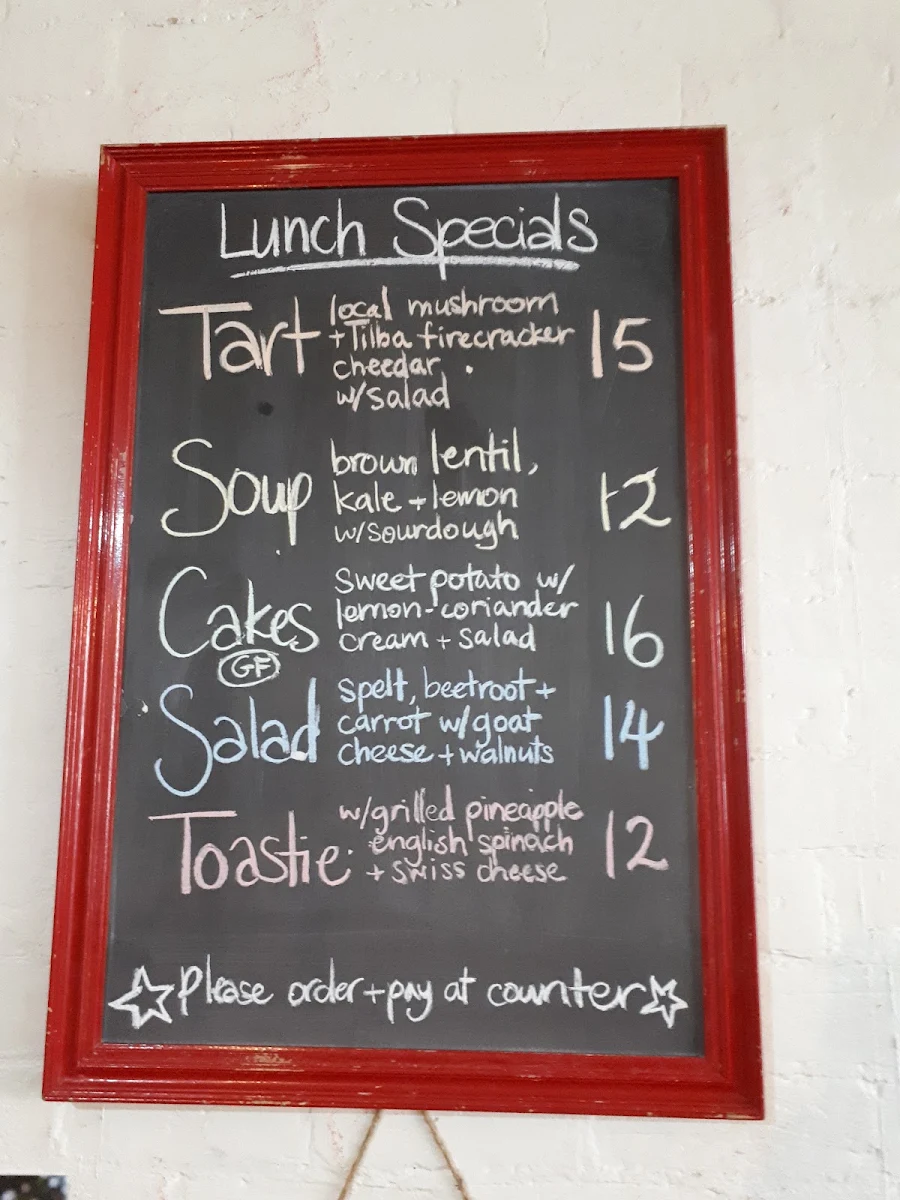 Lunch Specials
Tart local mushroom
+Tilba firecracker 15
cheedar
w/salad
Soup brown lentil,
kale + lemon 12
w/sourdough
Cakes sweet potato w/
lemon-coriander 16
cream + salad
GF
Salad spelt, beetroot +
carrot w/goat 14
cheese + walnuts
Toastie w/grilled pineapple
english spinach 12
+ swiss cheese
Please order + pay at counter